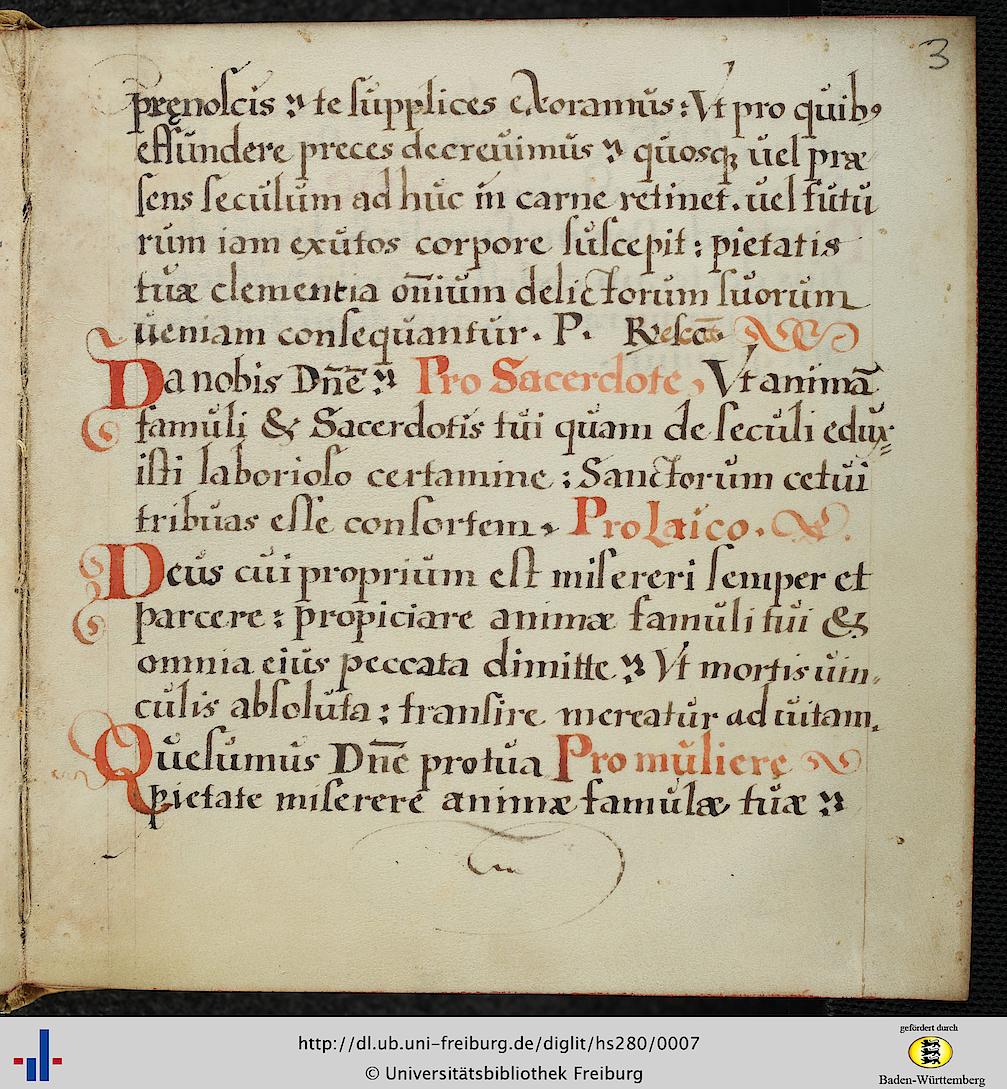 3
pręnoſcis : te ſupplices exoramus : Vt pro quibꝰ
effundere preces decreuimus : quosqꝫ uel præ
ſens ſeculum ad huc in carne retinet. uel futu
rum iam exutos corpore ſuſcepit : pietatis
tuæ clementia om̄ium delictorum ſuorum
ueniam conſequantur. P.
Da nobis Dn̄e : Pro Sacerdote, Vt animā
famuli & Sacerdotis tui quam de ſeculi edux=
iſti laborioſo certamine : Sanctorum cetui
tribuas eſſe conſortem, Pro Laico.
Deus cui proprium eſt miſereri ſemper et
parcere : propiciare animæ famuli tui &
omnia eius peccata dimitte : Vt mortis uin=
culis abſoluta : tranſire mereatur ad uitam.
Queſumus Dn̄e pro tua Pro muliere
pietate miſerere animæ famulæ tuæ :
http://dl.ub.uni-freiburg.de/diglit/hs280/0007
© Universitätsbibliothek Freiburg
gefördert durch
Baden-Württemberg